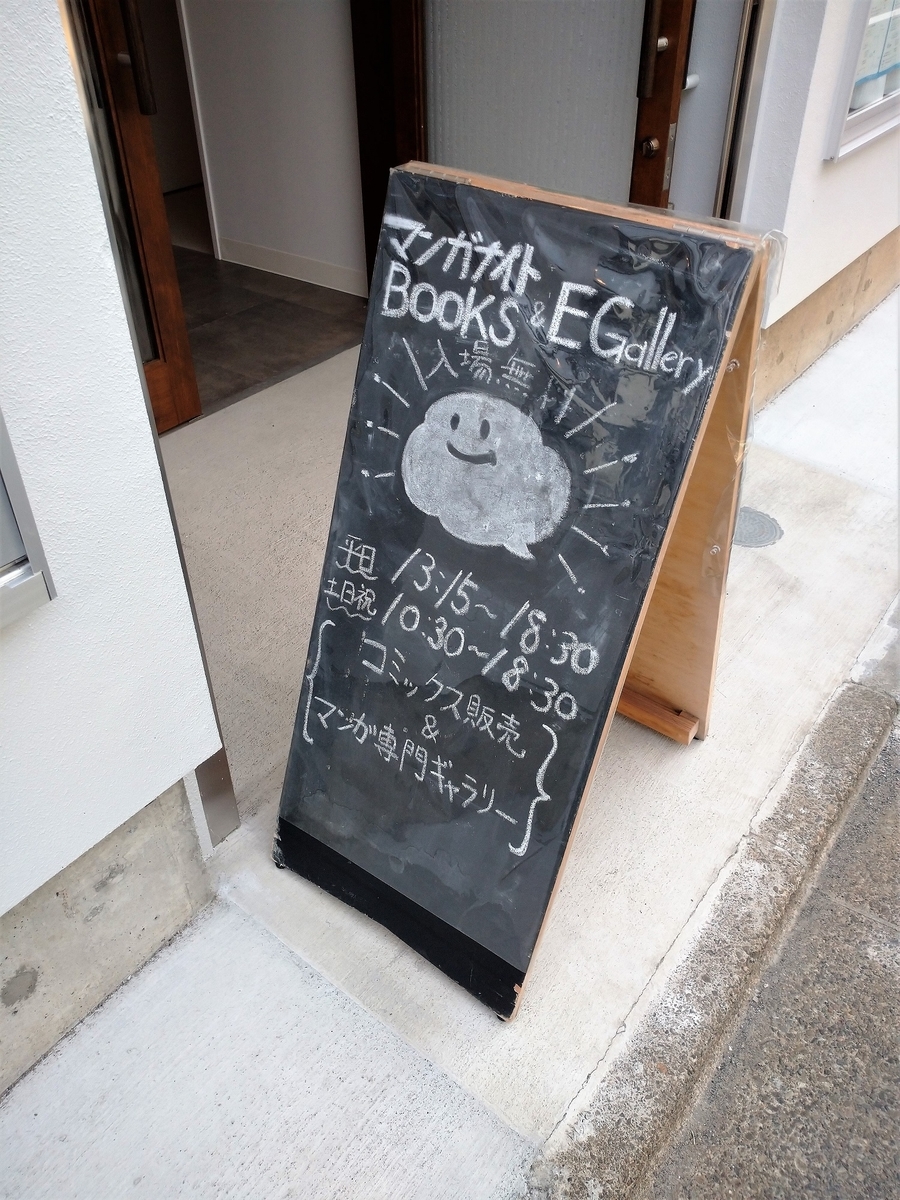 マンガナイト
BOOKS & EGallery
入場無料
平日 13:15~18:30
土日祝 10:30~18:30
コミックス販売
&
マンガ専門ギャラリー